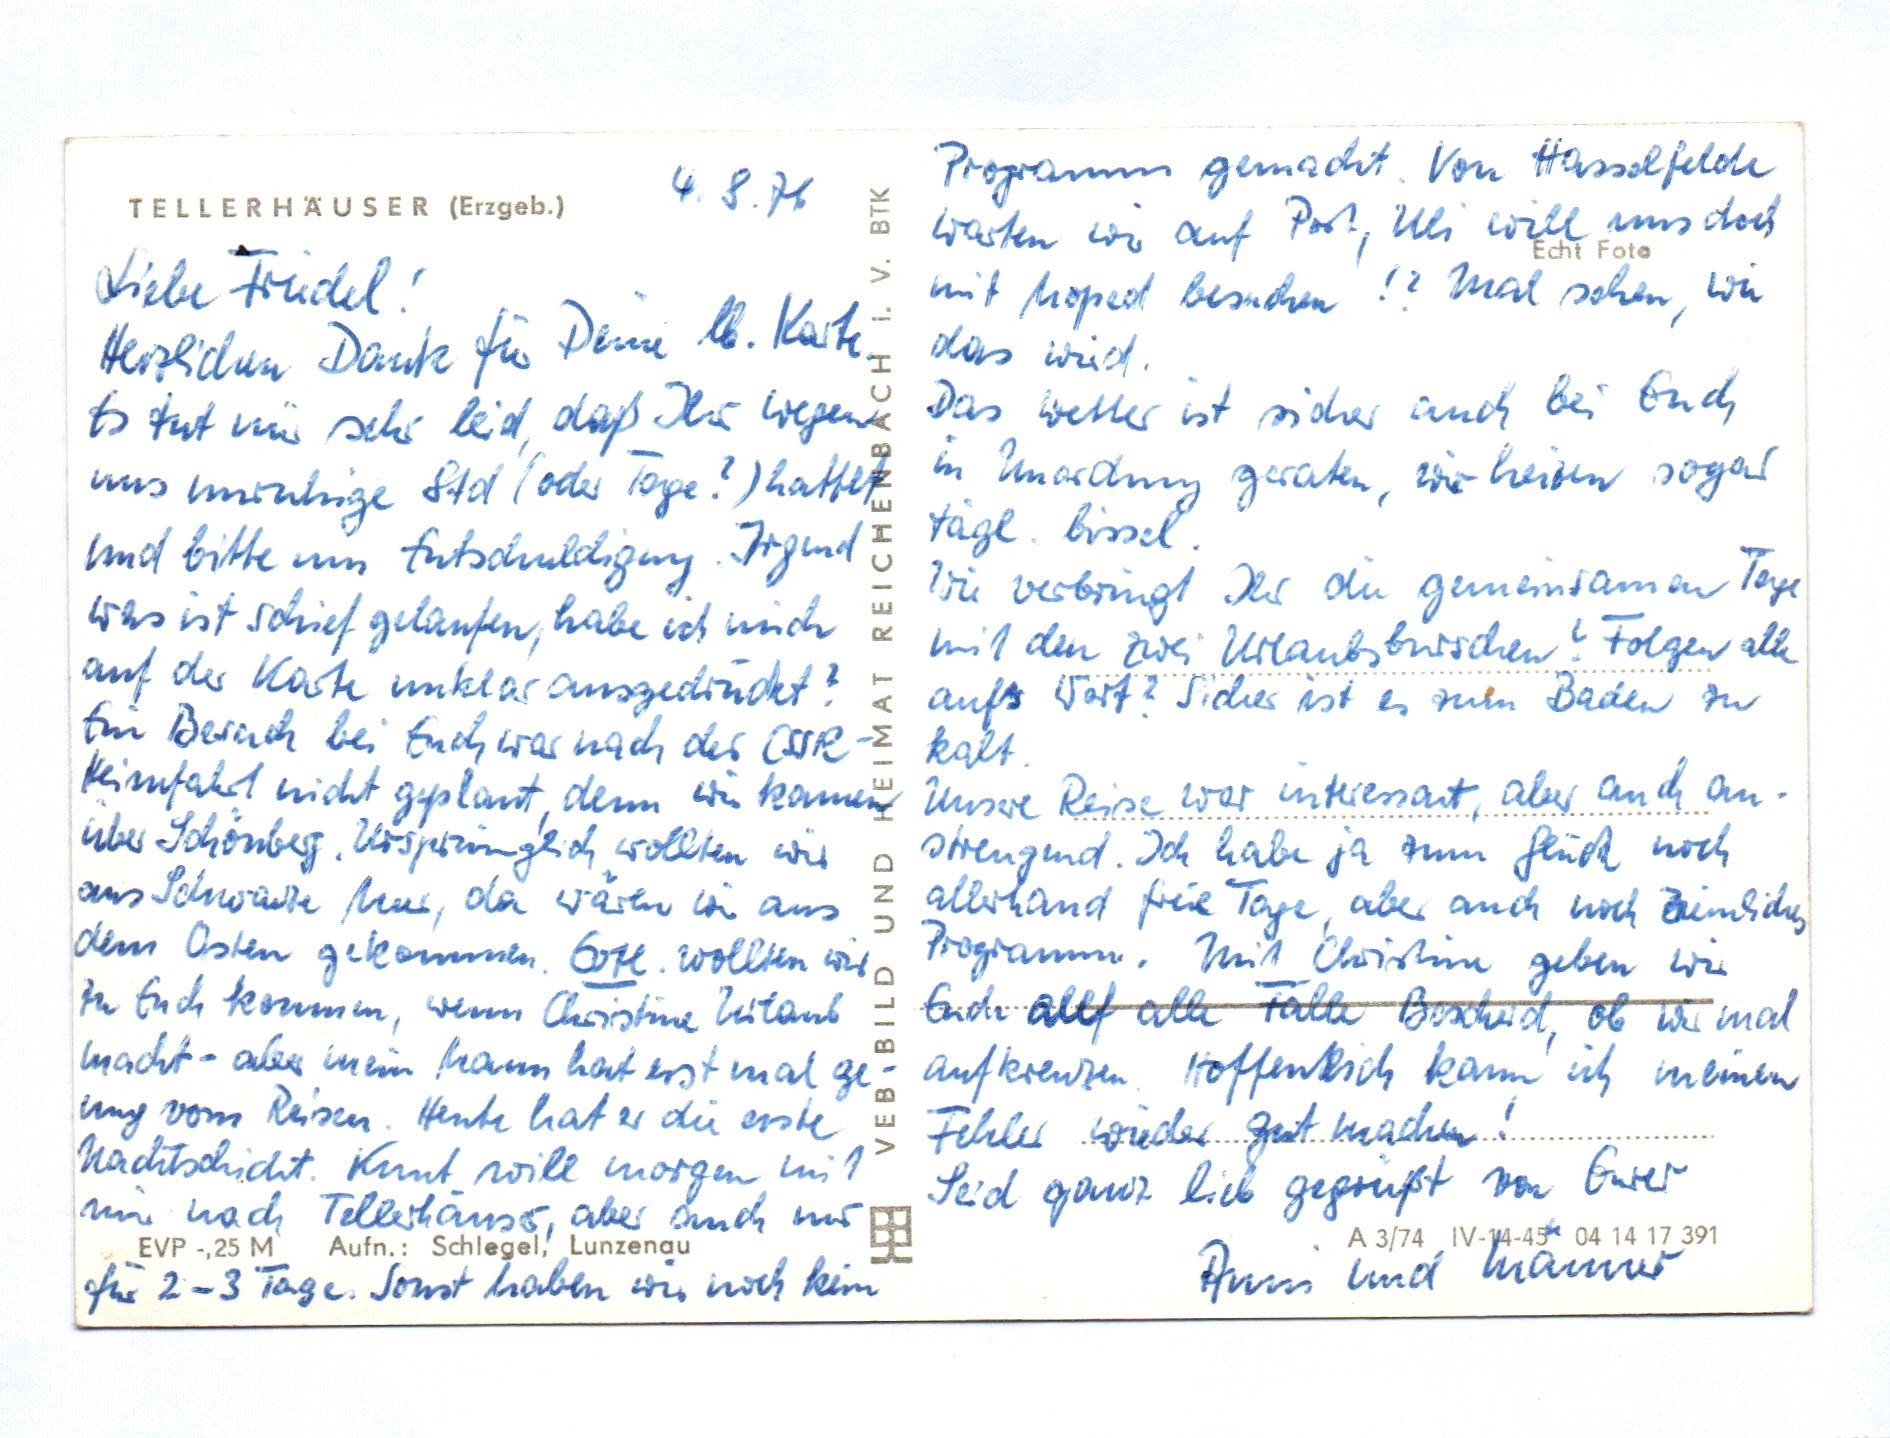 TELLERHÄUSER (Erzgeb.)
4.8.76
Liebe Friedel!
Herzlichen Dank für Deine lb. Karte.
Es tut mir sehr leid, daß Ihr wegen
uns unruhige Std (oder Tage?) hattet
und bitte um Entschuldigung. Irgend
was ist schief gelaufen, habe ich mich
auf der Karte unklar ausgedrückt?
Ein Besuch bei Euch war nach der CSSR-
Heimfahrt nicht geplant, denn wir kamen
über Schönberg. Ursprünglich wollten wir
ans Schwarze Meer, da wären wir aus
dem Osten gekommen. Evtl. wollten wir
zu Euch kommen, wenn Christine Urlaub
macht - aber mein Mann hat erst mal ge-
nug vom Reisen. Heute hat er die erste
Nachtschicht. Kurt will morgen mit
mir nach Tellerhäuser, aber auch nur
für 2-3 Tage. Sonst haben wir noch kein
EVP -,25 M Aufn.: Schlegel, Lunzenau
VEB BILD UND HEIMAT REICHENBACH I. V. BTK
Programm gemacht. Von Hasselfelde
warten wir auf Post, Uli will uns doch
Echt Foto
mit Moped besuchen!? Mal sehen, wie
das wird.
Das Wetter ist sicher auch bei Euch
in Unordnung geraten, wir heizen sogar
tägl. bissel.
Wie verbringt Ihr die gemeinsamen Tage
mit den zwei Urlaubsburschen? Folgen alle
aufs Wort? Sicher ist es zum Baden zu
kalt.
Unsere Reise war interessant, aber auch an-
strengend. Ich habe ja zum Glück noch
allerhand freie Tage, aber auch noch ziemliches
Programm. Mit Christine geben wir
Euch allf alle Fälle Bescheid, ob wir mal
aufkreuzen. Hoffentlich kann ich meinen
Fehler wieder gut machen!
Seid ganz lieb gegrüßt von Eurer
Anni und Männer
A 3/74 IV-14-45 04 14 17 391